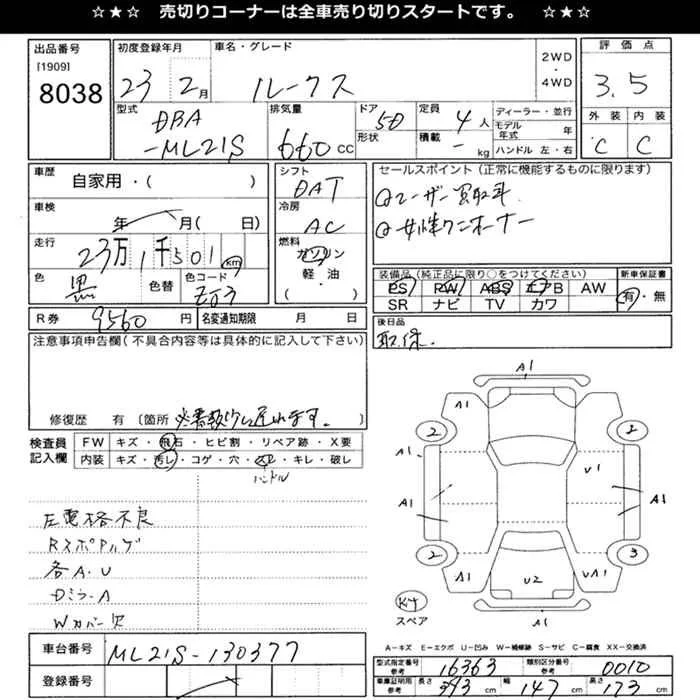 ☆★☆ 売切りコーナーは全車売り切りスタートです。 ☆★☆
出品番号
[1909]
8038
初度登録年月
23 2月
車名・グレード
ルークス
2WD
・
4WD
評価点
3.5
外装 内装
C C
型式
DBA
-ML21S
排気量
660 CC
ドア
形状
5D
定員
4 人
積載
- kg
ディーラー・並行
モデル
年式 年
ハンドル 左・右
車歴
自家用・( )
車検
年 月( 日)
走行
23万1千501 km
色
黒
色替
色コード
ZJ3
シフト
DAT
冷房
AC
燃料
ガソリン
軽・油
( )
セールスポイント(正常に機能するものに限ります)
①ユーザー買取車
②女性ワンオーナー
装備品(純正品に限り○をつけてください)
PS PW ABS エアB AW
SR ナビ TV カワ
新車保証書
有・無
R券 9560 円
名変通知期限 月 日
後日品
取、保、
注意事項申告欄(不具合内容等は具体的に記入して下さい)
修復歴 有〔箇所 必書類 遅れます。〕
検査員
記入欄
FW キズ・飛石・ヒビ割・リペア跡・X要
内装 キズ・汚レ・コゲ・穴・スレ・キレ・破レ
ハンドル
左電格不良
各A・U
DミラーA
Wカバー欠
A1
A1
2
2
A1
V1
A1
A1
2
3
A1
U2
UA1
A1
スペア
A-キズ E-エクボ U-凹み W-補修跡 S-サビ C-腐食 XX-交換済
車台番号
ML21S-130377
登録番号
型式指定番号
参考
16363
類別区分番号
参考
0010
車庫証明用
参考
長さ
393 cm
幅
147 cm
高さ
173 cm